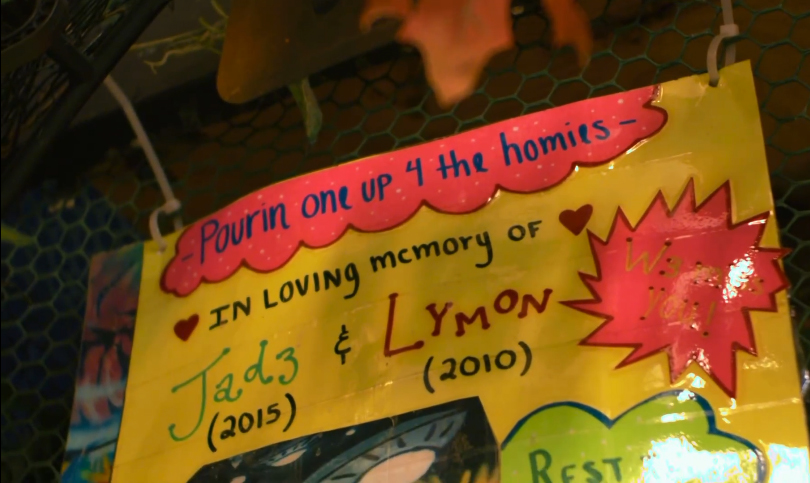 -Pourin one up 4 the homies-
IN LOVING memory OF
Jadz & LYMON
(2015) (2010)
you!
REST